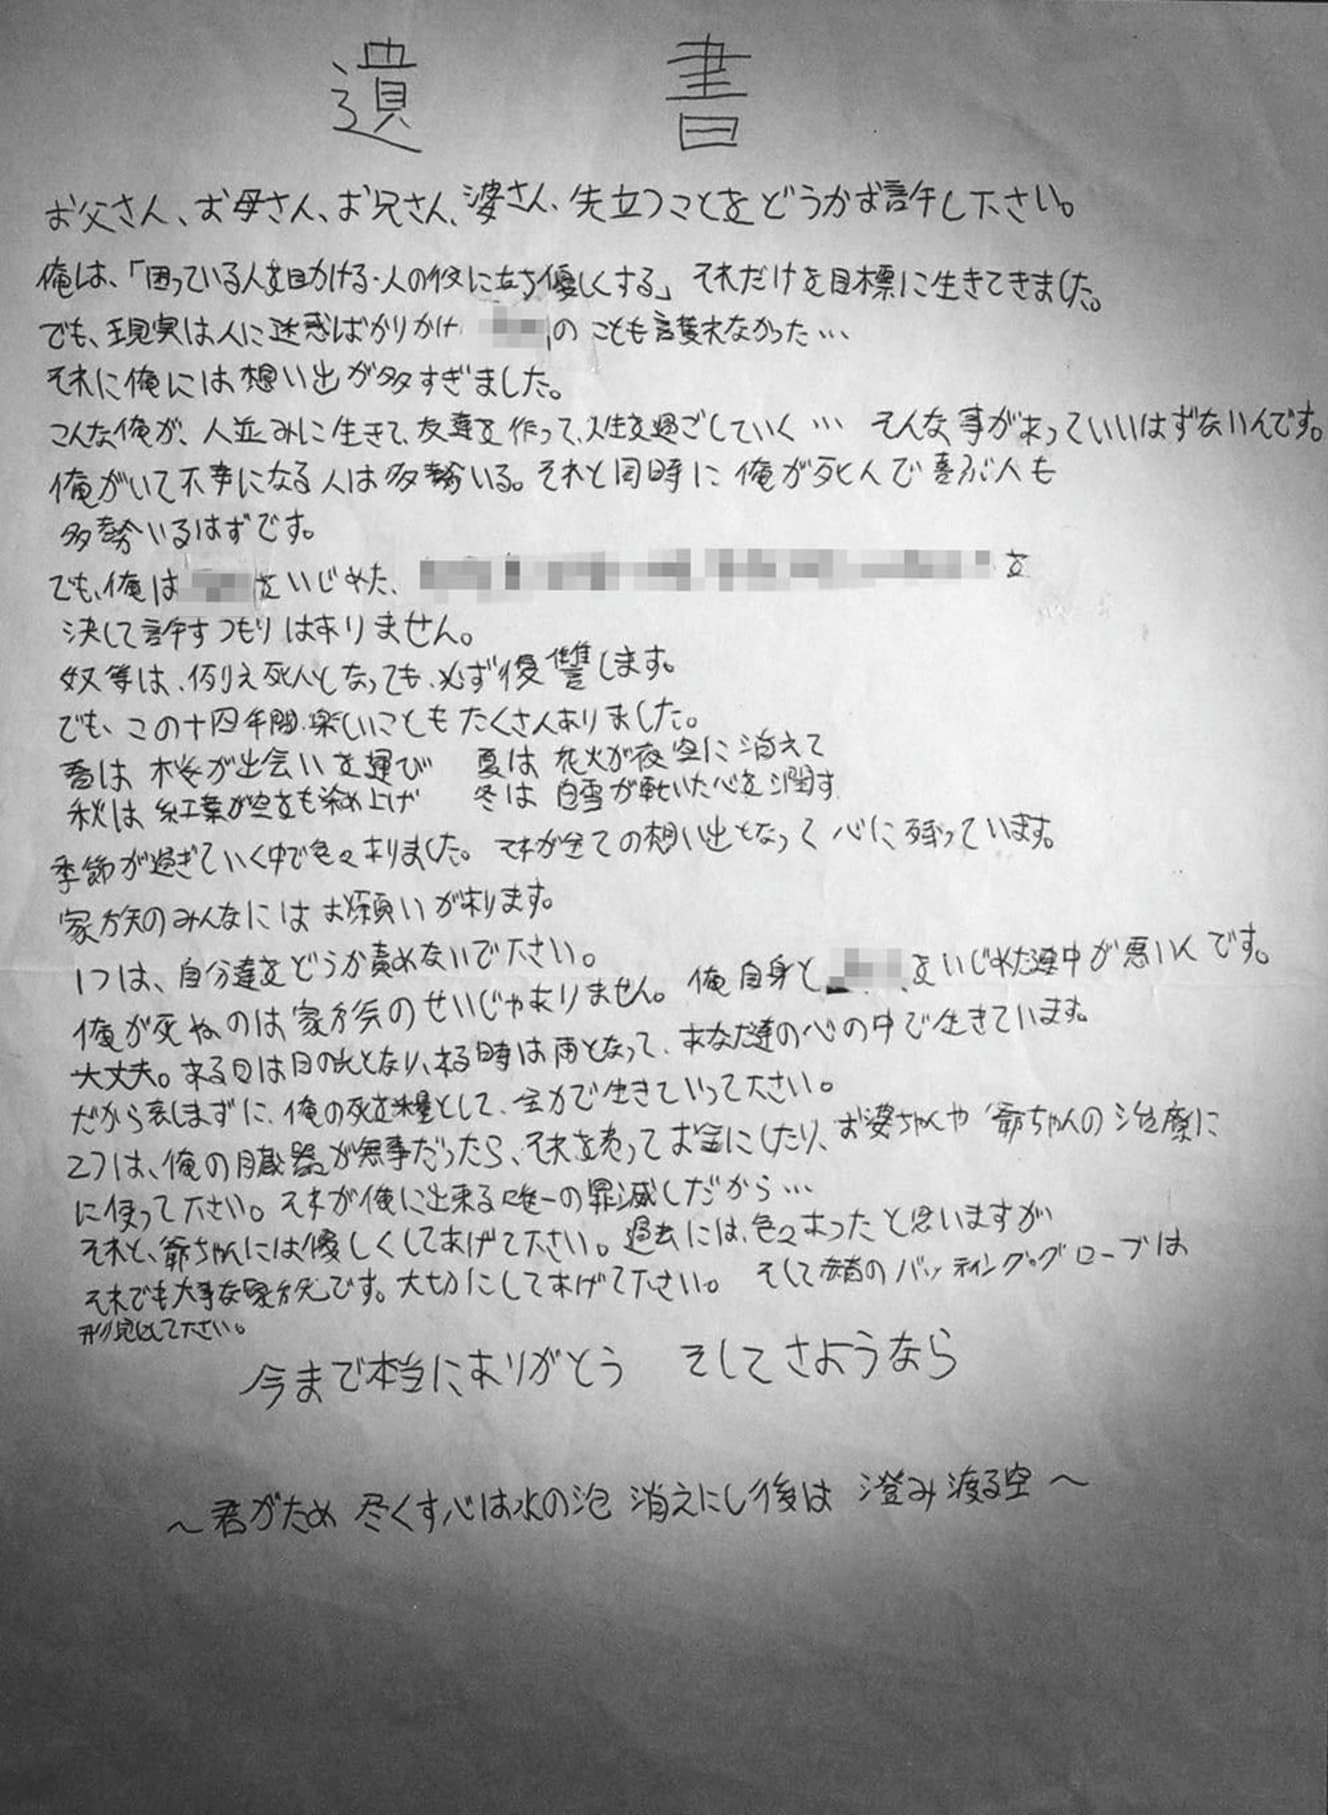 遺書
お父さん、お母さん、お兄さん、婆さん、先立つことをどうかお許し下さい。
俺は、「困っている人を助ける・人の役に立ち優しくする」それだけを目標に生きてきました。
でも、現実は人に迷惑ばかりかけ のことも護れなかった…
それに俺には想い出が多すぎました。
こんな俺が、人並みに生きて、友達を作って、人生を過ごしていく… そんな事があっていいはずないんです。
俺がいて不幸になる人は多勢いる。それと同時に俺が死んで喜ぶ人も
多勢いるはずです。
でも、俺は をいじめた、 を
決して許すつもりはありません。
奴等は、例え死人となっても、必ず復讐します。
でも、この十四年間、楽しいこともたくさんありました。
春は 桜が出会いを運び 夏は 花火が夜空に消えて
秋は 紅葉が空をも染め上げ 冬は 白雪が乾いた心を潤す
季節が過ぎていく中で色々ありました。それが全ての想い出となって心に残っています。
家族のみんなにはお願いがあります。
1つは、自分達をどうか責めないで下さい。
俺が死ぬのは家族のせいじゃありません。俺自身と をいじめた連中が悪いんです。
大丈夫。ある日は日の光となり、ある時は雨となって、あなた達の心の中で生きています。
だから哀しまずに、俺の死を糧として、全力で生きていって下さい。
2つは、俺の臓器が無事だったら、それを売ってお金にしたり、お婆ちゃんや爺ちゃんの治療に
に使って下さい。それが俺に出来る唯一の罪滅しだから…
それと、爺ちゃんには優しくしてあげて下さい。過去には、色々あったと思いますが
それでも大事な家族です。大切にしてあげて下さい。 そして赤青のバッティング・グローブは
形見にして下さい。
今まで本当にありがとう そしてさようなら
～君がため 尽くす心は水の泡 消えにし後は 澄み渡る空～